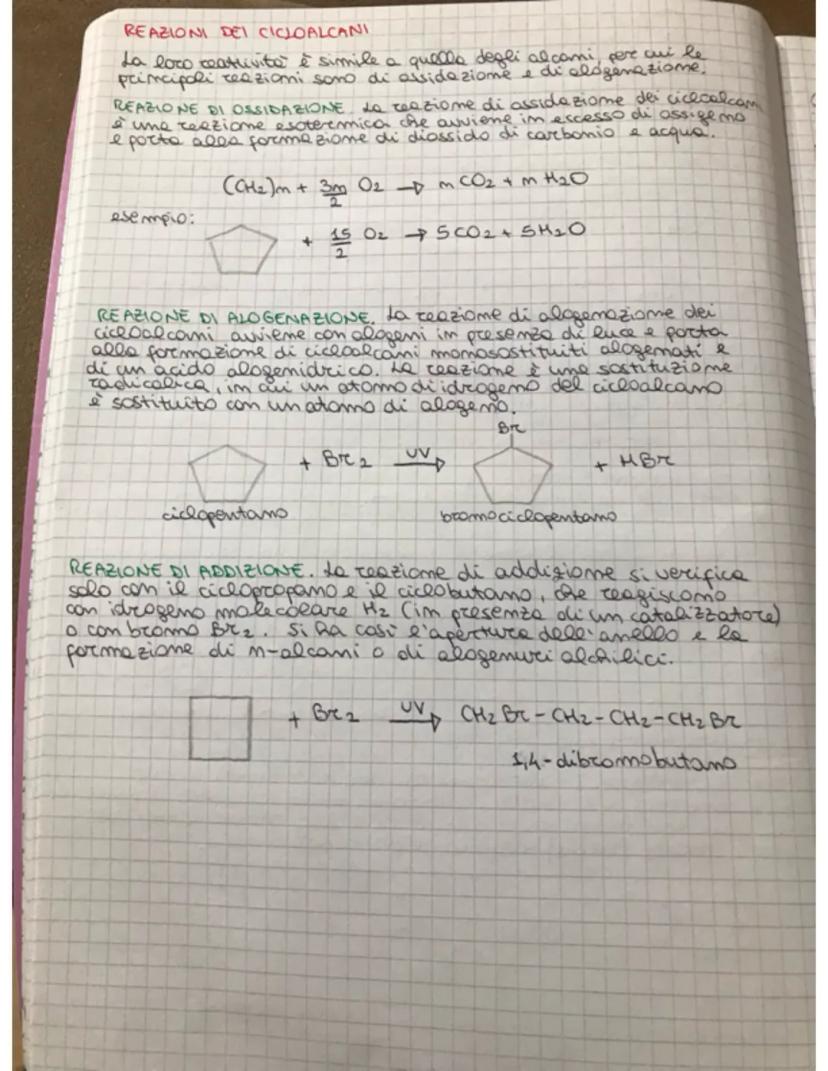 REAZIONI DEI CICLOALCANI
La loro reattività è simile a quella degli alcani, per cui le
principali reazioni sono di ossidazione e di alogenazione.
REAZIONE DI OSSIDAZIONE. La reazione di ossidazione dei cicloalcani
è una reazione esotermica che avviene in eccesso di ossigeno
e porta alla formazione di diossido di carbonio e acqua.
(CH2)n + 3n/2 O2 → n CO2 + n H2O
esempio:
+ 15/2 O2 → 5CO2 + 5H2O
REAZIONE DI ALOGENAZIONE. La reazione di alogenazione dei
cicloalcani avviene con alogeni in presenza di luce e porta
alla formazione di cicloalcani monosostituiti alogenati e
di un acido alogenidrico. La reazione è una sostituzione
radicalica, in cui un atomo di idrogeno del cicloalcano
è sostituito con un atomo di alogeno.
Br
+ Br2 UV → + HBr
ciclopentano bromociclopentano
REAZIONE DI ADDIZIONE. La reazione di addizione si verifica
solo con il ciclopropano e il ciclobutano, che reagiscono
con idrogeno molecolare H2 (in presenza di un catalizzatore)
o con bromo Br2. Si ha così l'apertura dell'anello e la
formazione di n-alcani o di alogenuri alchilici.
+ Br2 UV → CH2Br-CH2-CH2-CH2Br
1,4-dibromobutano